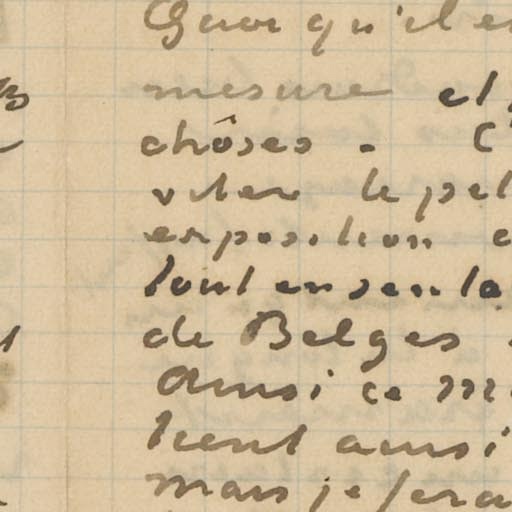 Quoi qu'il e
mesure et
chôses. C'
viter le pet
exposition
tout en sen ta
de Belges
Ainsi ce M
tient ainsi
mais je fera